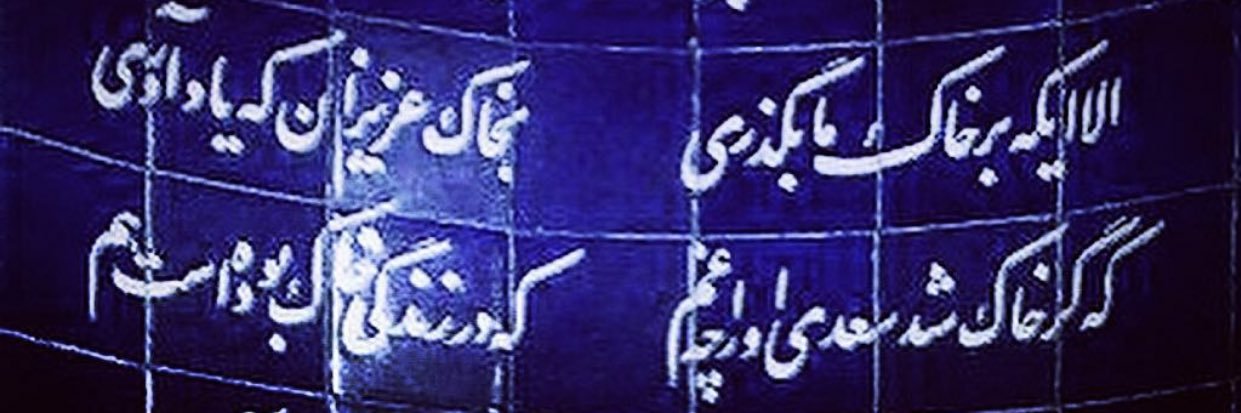 الا ایکه بر خاک ما بگذری بخاک عزیزان که یاد آوری
که گر خاک شد سعدی او را چه غم که در زندگی خاک بوده است هم